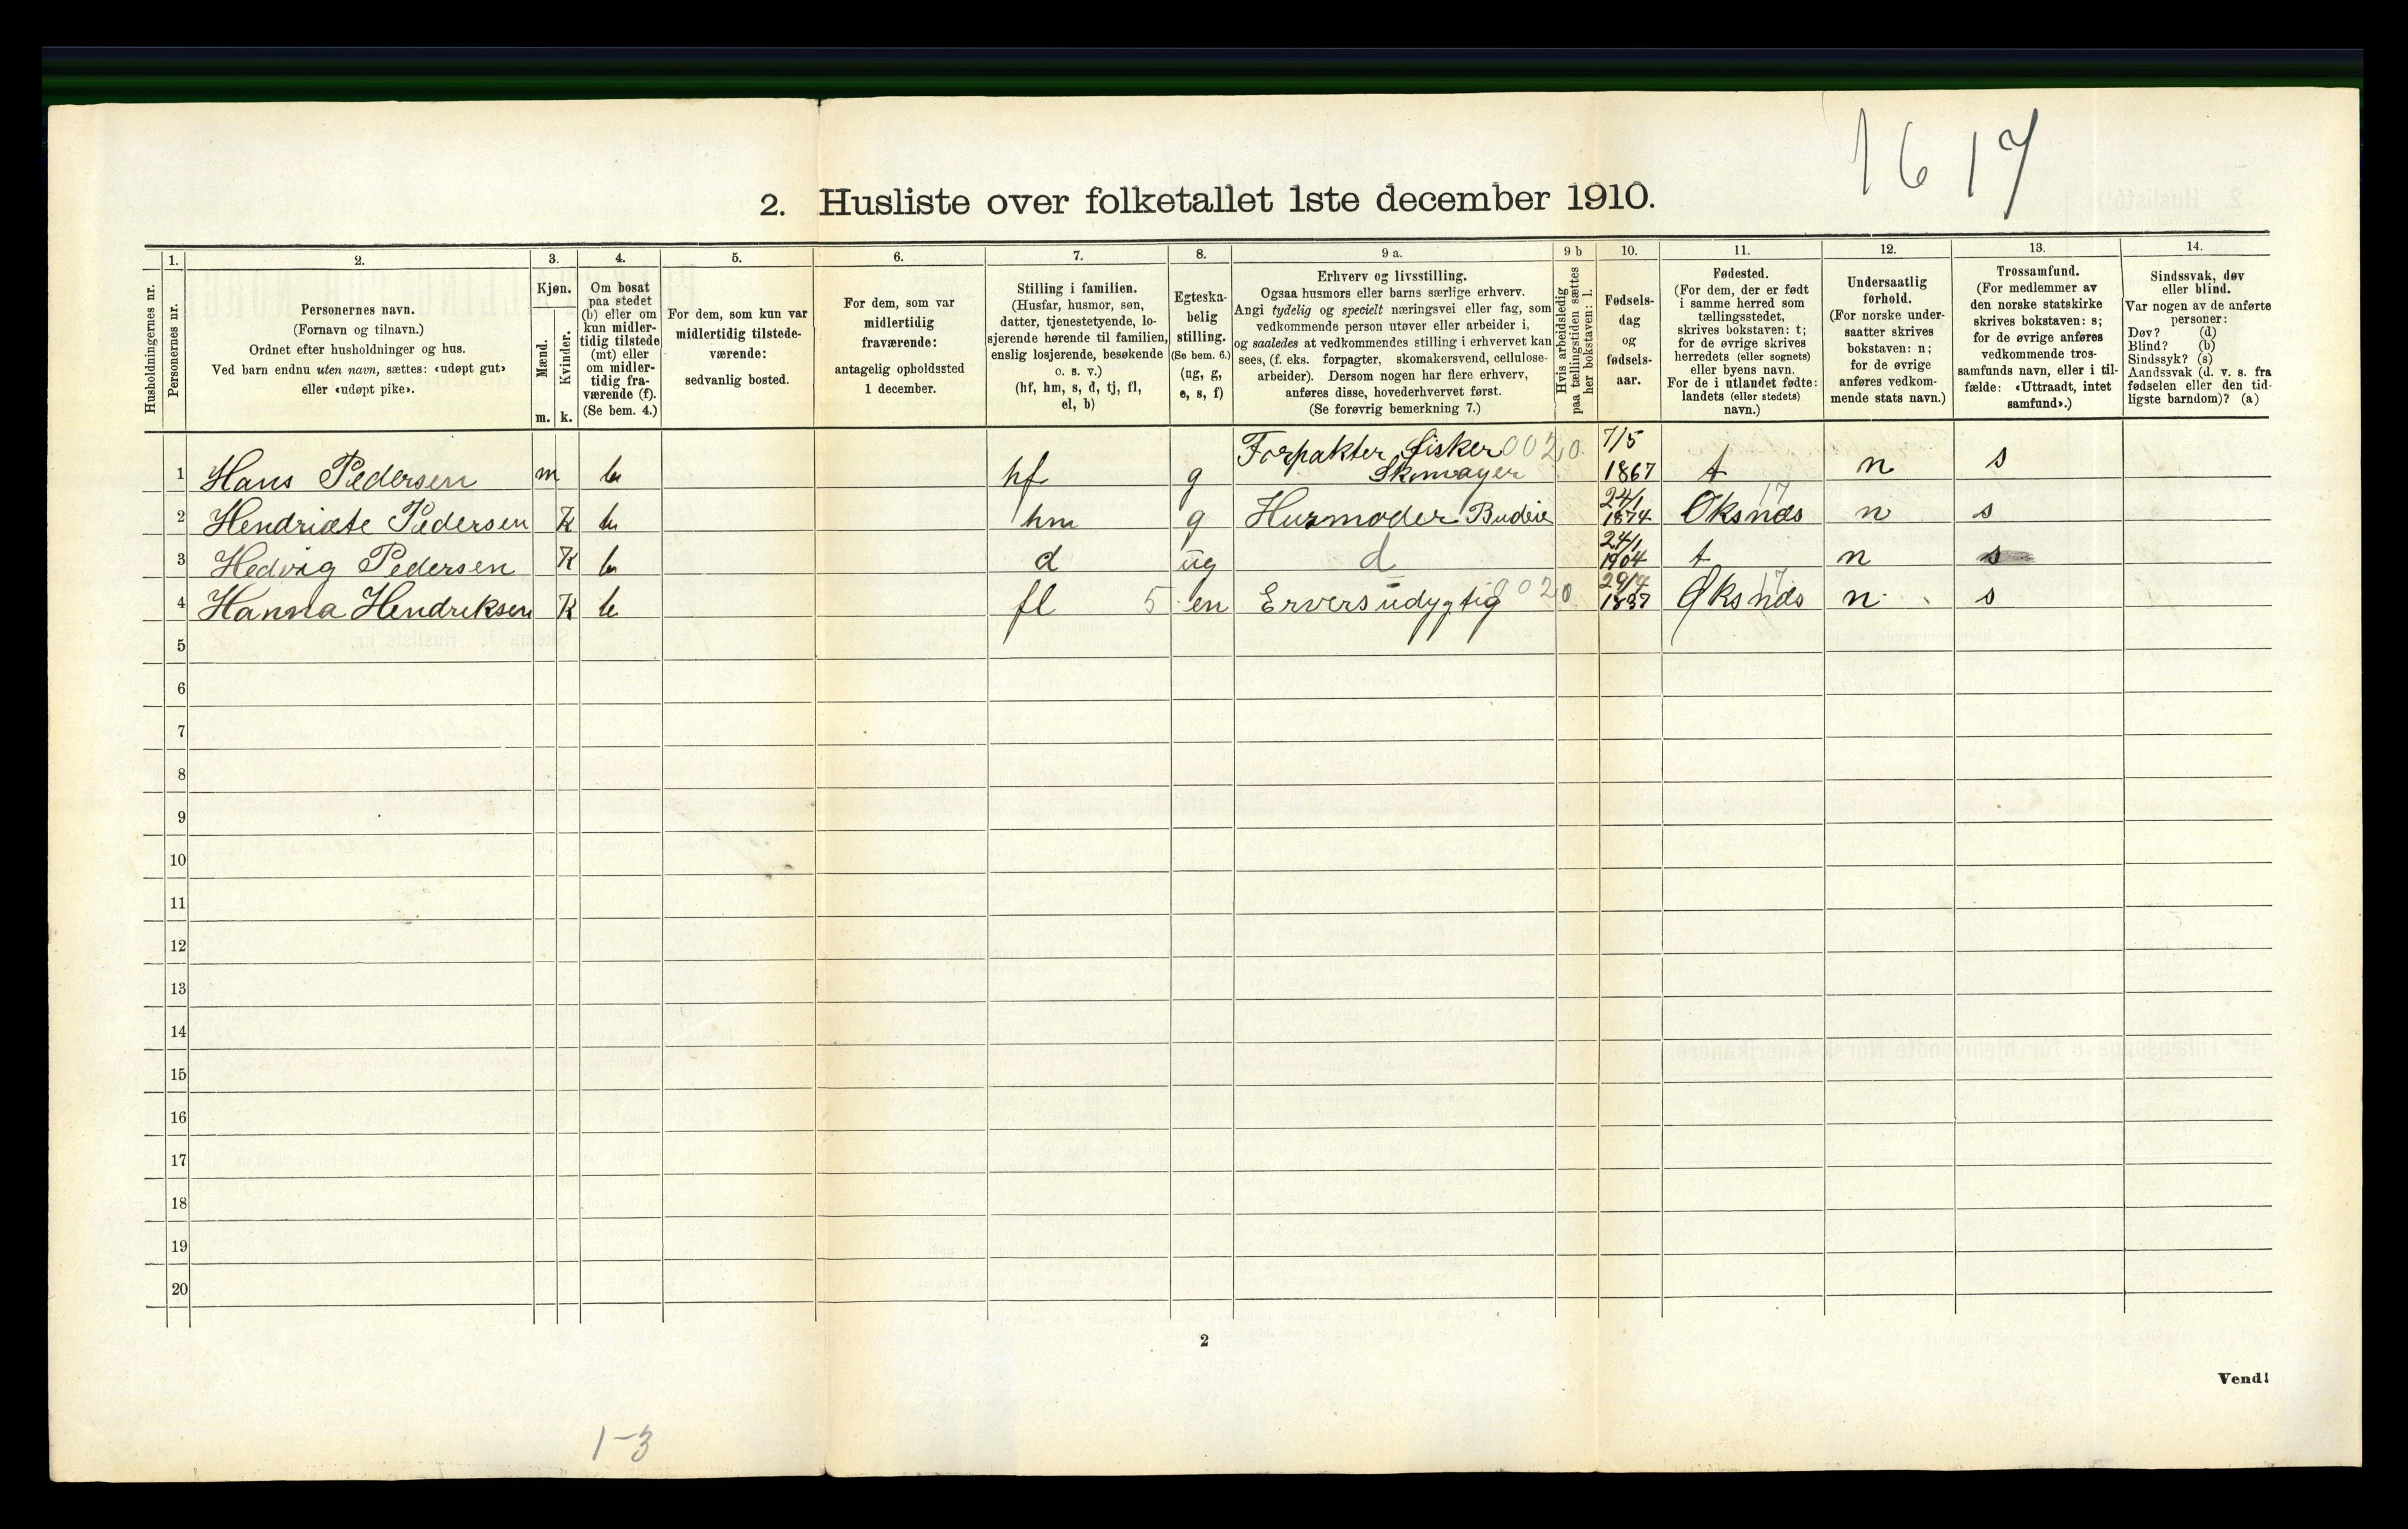 16 17
2. Husliste over folketallet 1ste december 1910.
Husholdningernes nr.
1.
Personernes nr.
2.
Personernes navn.
(Fornavn og tilnavn.)
Ordnet efter husholdninger og hus.
Ved barn endnu uten navn, sættes: «udøpt gut»
eller «udøpt pike».
3.
Kjøn.
Mænd.
Kvinder.
m. k.
4.
Om bosat
paa stedet
(b) eller om
kun midler-
tidig tilstede
(mt) eller
om midler-
tidig fra-
værende (f).
(Se bem. 4.)
5.
For dem, som kun var
midlertidig tilstede-
værende:
sedvanlig bosted.
6.
For dem, som var
midlertidig
fraværende:
antagelig opholdssted
1 december.
7.
Stilling i familien.
(Husfar, husmor, søn,
datter, tjenestetyende, lo-
sjerende hørende til familien,
enslig losjerende, besøkende
o. s. v.)
(hf, hm, s, d, tj, fl,
el, b)
8.
Egteska-
belig
stilling.
(Se bem. 6.)
(ug, g,
e, s, f)
9 a.
Erhverv og livsstilling.
Ogsaa husmors eller barns særlige erhverv.
Angi tydelig og specielt næringsvei eller fag, som
vedkommende person utøver eller arbeider i,
og saaledes at vedkommendes stilling i erhvervet kan
sees, (f. eks. forpagter, skomakersvend, cellulose-
arbeider). Dersom nogen har flere erhverv,
anføres disse, hovederhvervet først.
(Se forøvrig bemerkning 7.)
9 b
Hvis arbeidsledig
paa tællingstiden sættes
her bokstaven: l.
10.
Fødsels-
dag
og
fødsels-
aar.
11.
Fødested.
(For dem, der er født
i samme herred som
tællingsstedet,
skrives bokstaven: t;
for de øvrige skrives
herredets (eller sognets)
eller byens navn.
For de i utlandet fødte:
landets (eller stedets)
navn.)
12.
Undersaatlig
forhold.
(For norske under-
saatter skrives
bokstaven: n;
for de øvrige
anføres vedkom-
mende stats navn.)
13.
Trossamfund.
(For medlemmer av
den norske statskirke
skrives bokstaven: s;
for de øvrige anføres
vedkommende tros-
samfunds navn, eller i til-
fælde: «Uttraadt, intet
samfund».)
14.
Sindssvak, døv
eller blind.
Var nogen av de anførte
personer:
Døv? (d)
Blind? (b)
Sindssyk? (s)
Aandssvak (d. v. s. fra
fødselen eller den tid-
ligste barndom)? (a)
1 Hans Pedersen m b hf g Forpakter fisker 0020 Skomayer 7/5 1867 t n s
2 Hendriete Pedersen K b hm g Husmoder Budeie 24/1 1874 Øksnæs 17 n s
3 Hedvig Pedersen K b d ug d 24/1 1904 t n s
4 Hanna Hendriksen K b fl 5 en Erversudygtig 0020 1837 Øksnæs 17 n s
5
6
7
8
9
10
11
12
13
14
15
16
17
18
19
20
2
Vend!
1-3